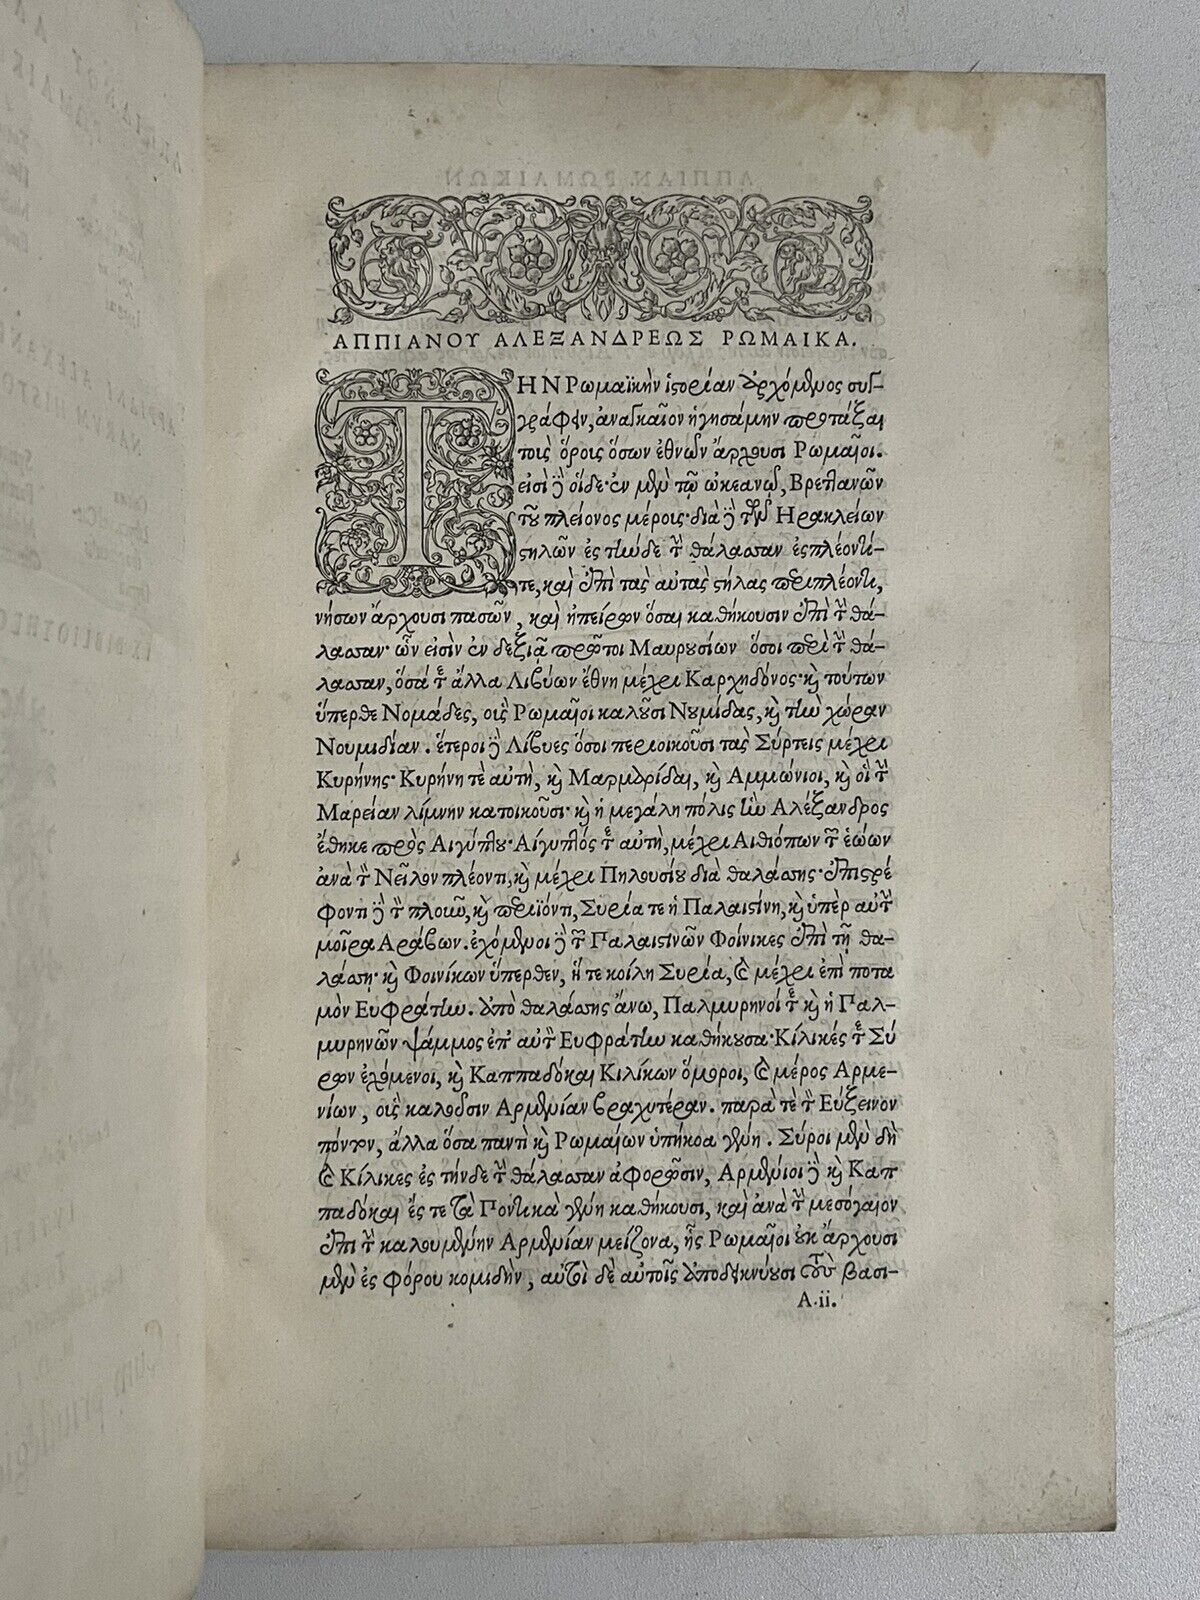 ΑΠΠΙΑΝΟΥ ΑΛΕΞΑΝΔΡΕΩΣ ΡΩΜΑΙΚΑ.
ΤΗΝ Ρωμαϊκὴν ἱστορίαν ἀρχόμενος συγ-
γράφειν, ἀναγκαῖον ἡγησάμην προτάξαι
τοὺς ὅρους ὅσων ἐθνῶν ἄρχουσι Ρωμαῖοι.
εἰσὶ δὲ οἵδε· ἐν μὲν τῷ ὠκεανῷ, Βρεττανῶν
τοῦ πλείονος μέρους· διὰ δὲ τῶν Ηρακλείων
στηλῶν ἐς τήνδε τὴν θάλασσαν ἐσπλέοντί-
τε, καὶ ἐπὶ τὰς αὐτὰς στήλας περιπλέοντι,
νήσων ἄρχουσι πασῶν, καὶ ἠπείρων ὅσαι καθήκουσιν ἐπὶ τὴν θά-
λασσαν· ὧν εἰσὶν ἐν δεξιᾷ πρῶτοι Μαυρουσίων ὅσοι περὶ τὴν θά-
λασσαν, ὅσά τε ἄλλα Λιβύων ἔθνη μέχρι Καρχηδόνος· καὶ τούτων
ὕπερθε Νομάδες, οὓς Ρωμαῖοι καλοῦσι Νουμίδας, καὶ τὴν χώραν
Νουμιδίαν. ἕτεροι δὲ Λίβυες ὅσοι περιοικοῦσι τὰς Σύρτεις μέχρι
Κυρήνης· Κυρήνη τὲ αὐτὴ, καὶ Μαρμαρίδαι, καὶ Αμμώνιοι, καὶ οἳ τὴν
Μαρείαν λίμνην κατοικοῦσι· καὶ ἡ μεγάλη πόλις ἣν Αλέξανδρος
ἔθηκε πρὸς Αἰγύπτου· Αἴγυπτός τε αὐτὴ, μέχρι Αἰθιόπων τῶν ἑῴων
ἀνὰ τὸν Νεῖλον πλέοντι, καὶ μέχρι Πηλουσίου διὰ θαλάσσης· ἐπιστρέ
φοντι δὲ τὸν πλοῦν, καὶ περιϊόντι, Συρία τε ἡ Παλαιστίνη, καὶ ὑπὲρ αὐτὴν
μοῖρα Αράβων. ἐχόμενοι δὲ τῶν Παλαιστίνων Φοίνικες ἐπὶ τῇ θα-
λάσσῃ· καὶ Φοινίκων ὕπερθεν, ἥ τε κοίλη Συρία, καὶ μέχρι ἐπὶ ποτα
μὸν Εὐφράτην. ἀπὸ θαλάσσης ἄνω, Παλμυρηνοί τε καὶ ἡ Παλ-
μυρηνῶν ψάμμος ἐπ' αὐτὸν Εὐφράτην καθήκουσα· Κίλικές τε Σύ
ρων ἐχόμενοι, καὶ Καππαδόκαι Κιλίκων ὅμοροι, καὶ μέρος Αρμε-
νίων, οὓς καλοῦσιν Αρμενίαν βραχυτέραν. παρὰ τὲ τὸν Εὔξεινον
πόντον, ἄλλα ὅσα παντὶ καὶ Ρωμαίων ὑπήκοα γένη. Σύροι μὲν δὴ
καὶ Κίλικες ἐς τήνδε τὴν θάλασσαν ἀφορῶσιν, Αρμένιοι δὲ καὶ Καπ
παδόκαι ἔς τε τὰ Ποντικὰ γένη καθήκουσι, καὶ ἀνὰ τὴν μεσόγαιον
ἐπὶ τὴν καλουμένην Αρμενίαν μείζονα, ἧς Ρωμαῖοι οὐκ ἄρχουσι
μὲν ἐς φόρου κομιδὴν, αὐτοὶ δὲ αὐτοῖς ἀποδεικνύουσι τοὺς βασι-
A.ii.
Cum